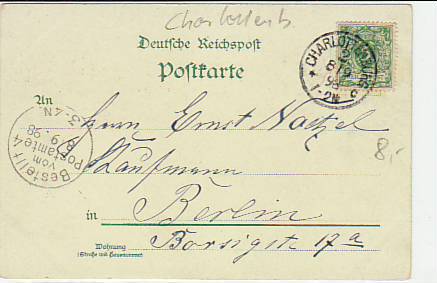 Charlottenb.
Deutsche Reichspost
Postkarte
CHARLOTTENBURG
2
8/9
98
1-2N
An
Herrn Ernst Natzel
Kaufmann
in Berlin
Borsigstr. 17a
Wohnung
(Straße und Hausnummer)
Bestellt
vom
Postamte 4
8.9.98
3-4N
8,-